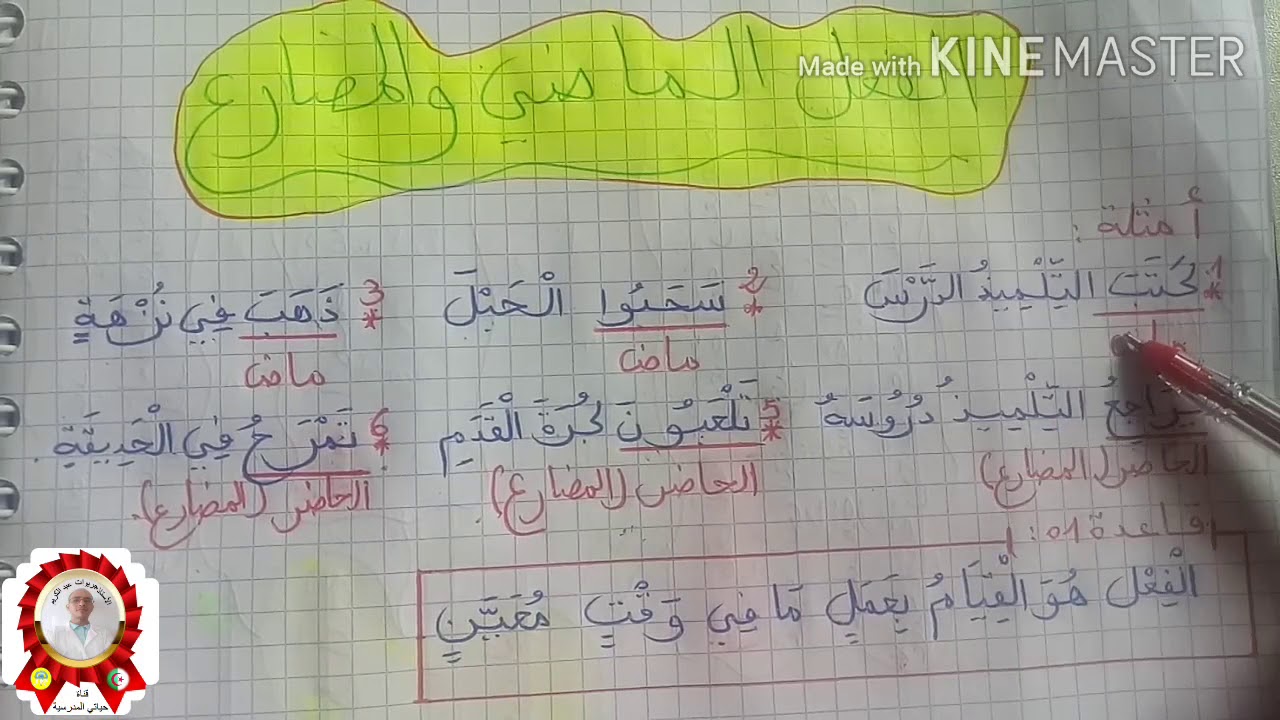 Made with KINEMASTER
الفعل الماضي والمضارع
أمثلة :
1* كَتَبَ التِّلْمِيذُ الدَّرْسَ
2* سَحَبُوا الْحَبْلَ
3* ذَهَبَ فِي نُزْهَةٍ
ماض
ماض
يُرَاجِعُ التِّلْمِيذُ دُرُوسَهُ
5* تَلْعَبُونَ كُرَةَ الْقَدَمِ
6* تَمْرَحُ فِي الْحَدِيقَةِ .
الحاضر (المضارع)
الحاضر (المضارع)
الحاضر (المضارع).
قاعدة 01 :
الْفِعْل هُوَ الْقِيَامُ بِعَمَلٍ مَا فِي وَقْتٍ مُعَيَّنٍ
الأستاذ جريوات عبد الكريم
قناة
حياتي المدرسية